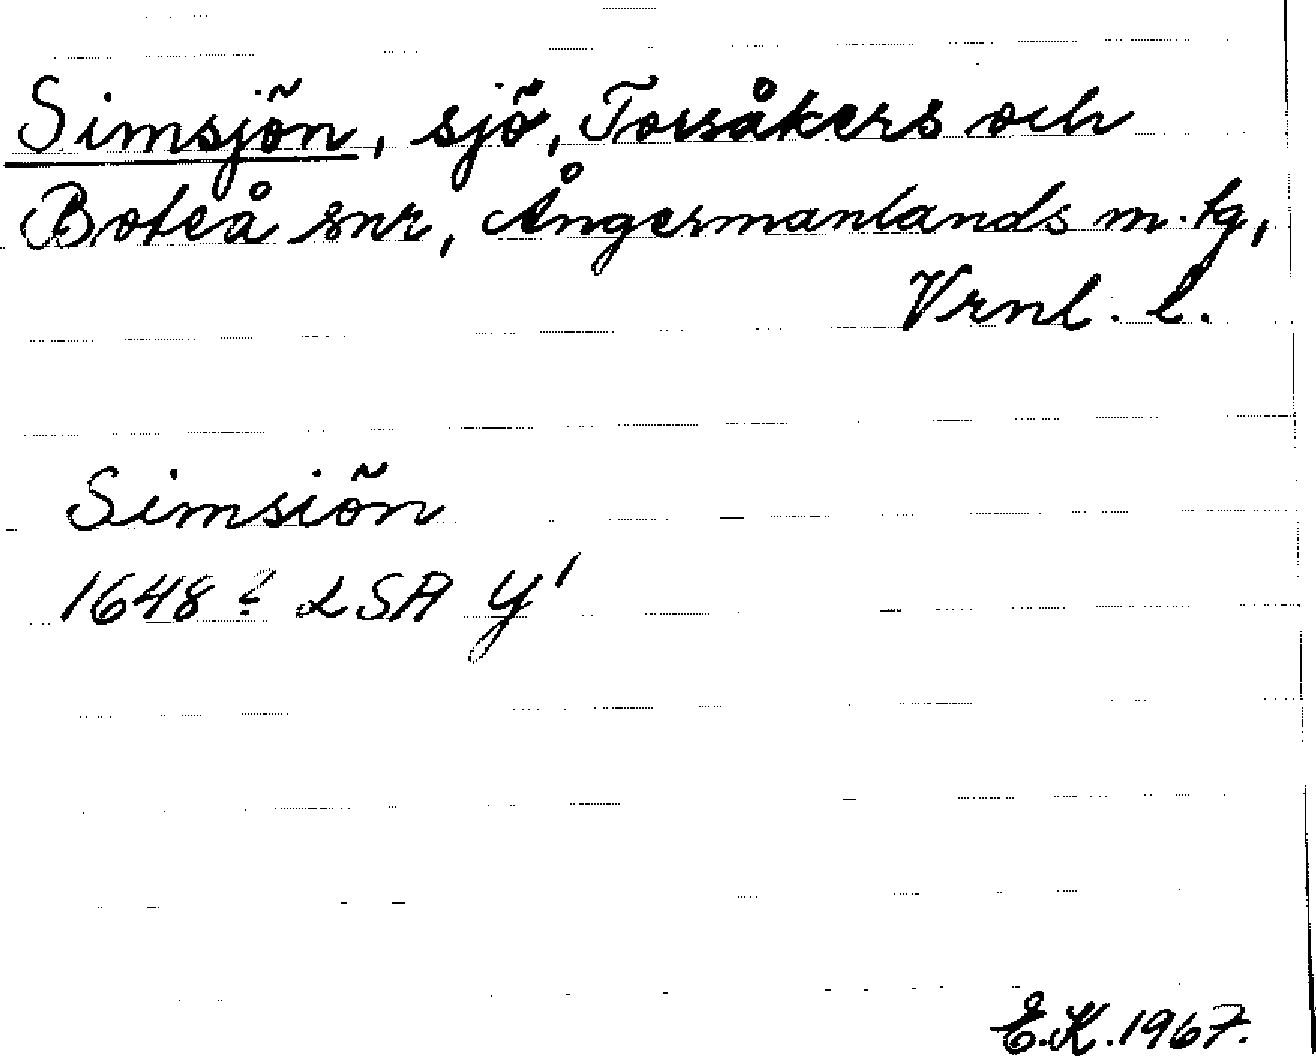 Simsjön, sjö, Torsåkers och
Boteå snr, Ångermanlands m. tg,
Vrnl. l.
Simsiön
1648? LSA Y¹
E.K. 1967.